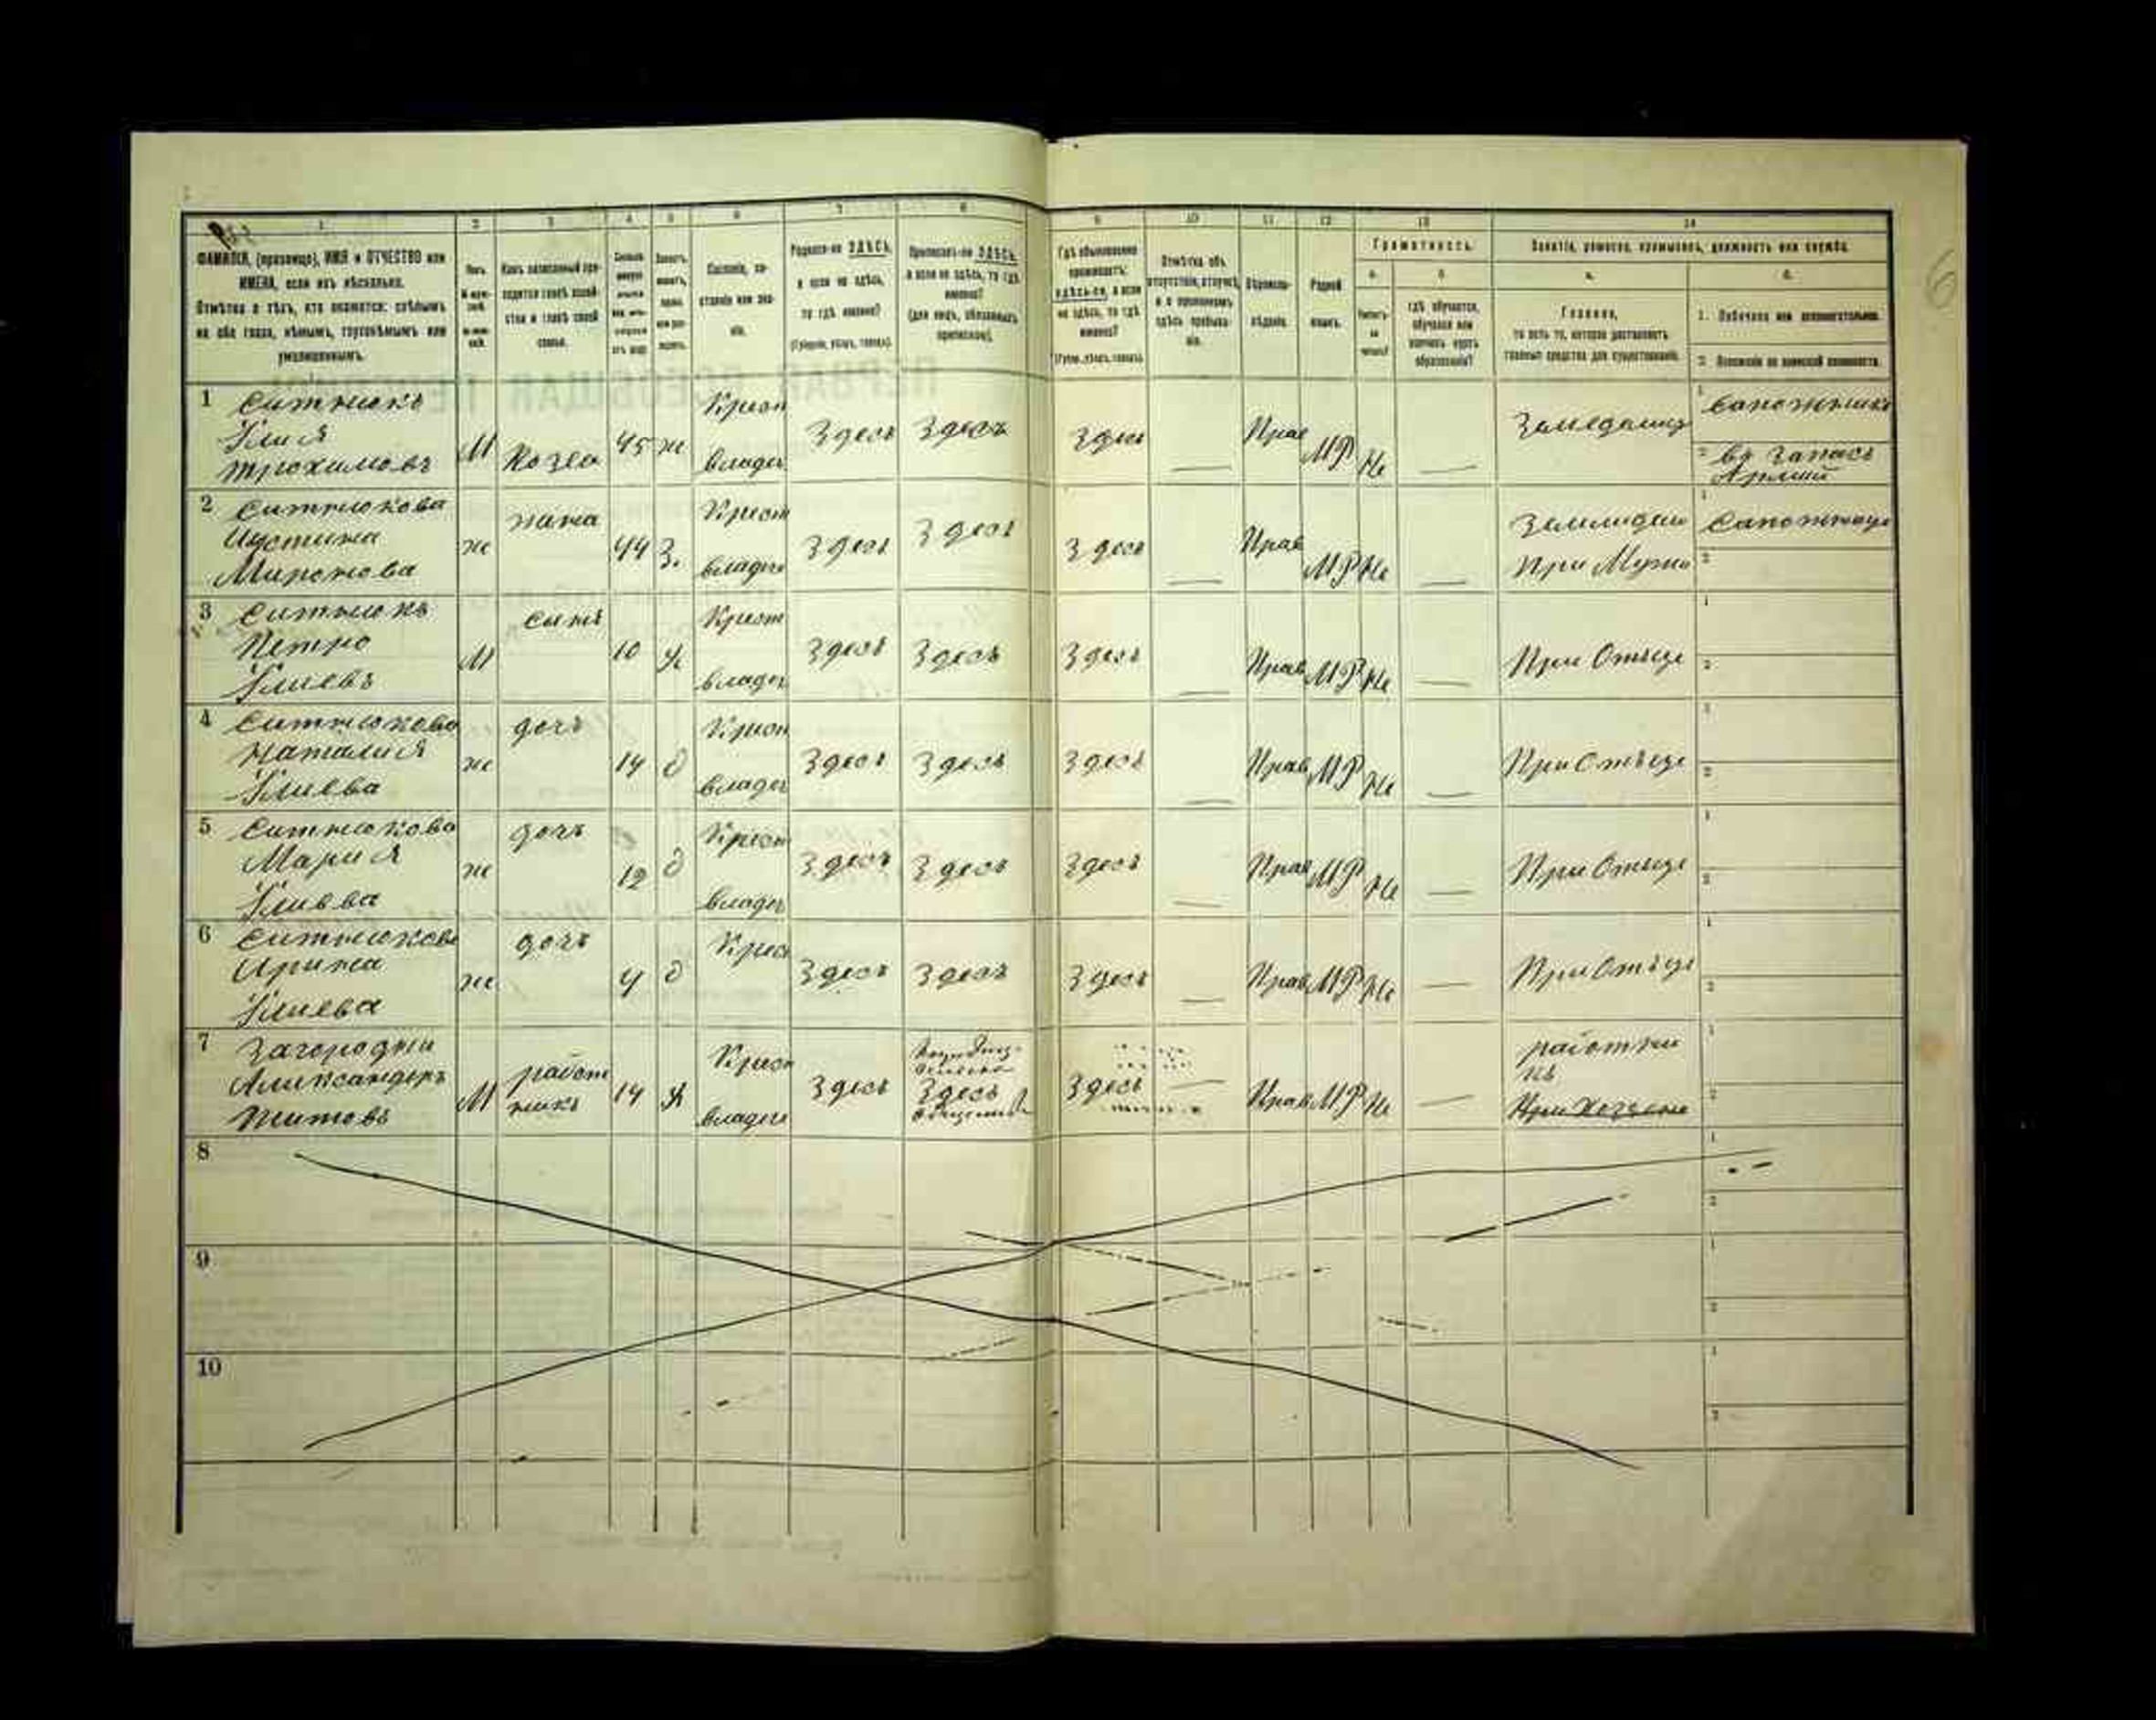 1 2 3 4 5 6 7 8 9 10 11 12 13 14
6
ФАМИЛІЯ, (прозвище), ИМЯ и ОТЧЕСТВО или
ИМЕНА, если ихъ нѣсколько.
Отмѣтка о тѣхъ, кто окажется: слѣпымъ
на оба глаза, нѣмымъ, глухонѣмымъ или
умалишеннымъ.
Полъ.
Какъ записанный при-
ходится главѣ хозяй-
ства и главѣ своей
семьи.
Сословіе, со-
стояніе или зва-
ніе.
Родился-ли ЗДѢСЬ,
а если не здѣсь,
то гдѣ именно?
(Губернія, уѣздъ, городъ).
Приписанъ-ли ЗДѢСЬ,
а если не здѣсь, то гдѣ
именно?
(для лицъ, обязанныхъ
припиской).
Гдѣ обыкновенно
проживаетъ:
здѣсь-ли, а если
не здѣсь, то гдѣ
именно?
(Губер., уѣздъ, городъ).
Отмѣтка объ
отсутствіи, отлучкѣ
и о временномъ
здѣсь пребыва-
ніи.
Вѣроиспо-
вѣданіе.
Родной
языкъ.
Грамотность.
а. б.
Умѣетъ-
ли
читать?
гдѣ обучается,
обучался или
кончилъ курсъ
образованія?
Занятіе, ремесло, промыселъ, должность или служба.
а. б.
Главное,
то есть то, которое доставляетъ
главныя средства для существованія.
1. Побочное или вспомогательное.
2. Положеніе по воинской повинности.
1 Ситнюкъ
Илия
Трохимовъ
М Козеа 45 ж Крест
владел Здесь Здесь Здесь — Прав МР Не — Земледелиц
1 Сапожникъ
2 въ запасѣ
Армии
2 Ситнюкова
Иустина
Миронова
ж жена 44 З. Крест
владел Здесь Здесь Здесь — Прав МР Не — Землидели
при Мужи
1 Сапожницт
2
3 Ситнюкъ
Петро
Илиевъ
М сынъ 10 Х Крест
владел Здесь Здесь Здесь — Прав МР Не — При Отьце
1
2
4 Ситнюкова
Наталия
Илиева
ж дочь 14 д Крест
владел Здесь Здесь Здесь — Прав МР Не — При Отьце
1
2
5 Ситнюкова
Мария
Илиева
ж дочь 12 д Крест
владел Здесь Здесь Здесь — Прав МР Не — При Отьце
1
2
6 Ситнюкова
Ирина
Илиева
ж дочь 4 д Крес
Здесь Здесь Здесь — Прав МР Не — При Отьце
1
2
7 Загородни
Александеръ
Титовъ
М работ
никъ 14 Х Крест
владел Здесь Здесь Здесь — Прав МР Не — работни
къ
При Хозеене
1
2
8 1
2
9 1
2
10 1
2